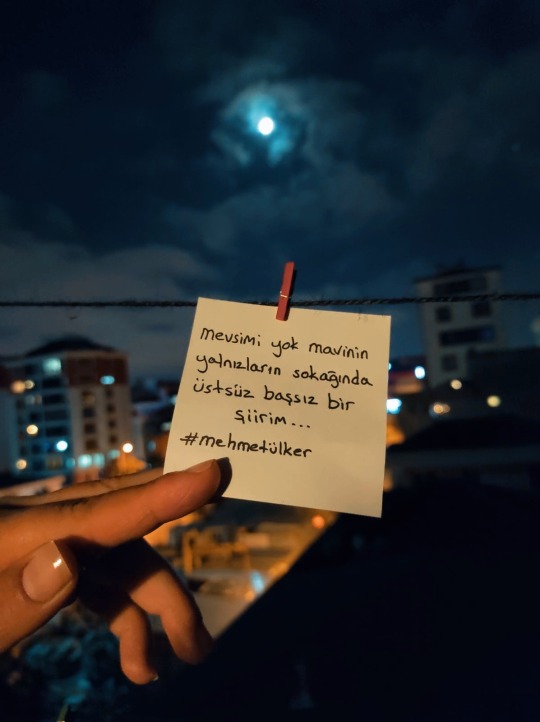 mevsimi yok mavinin
yalnızların sokağında
üstsüz başsız bir
şiirim...
#mehmetülker